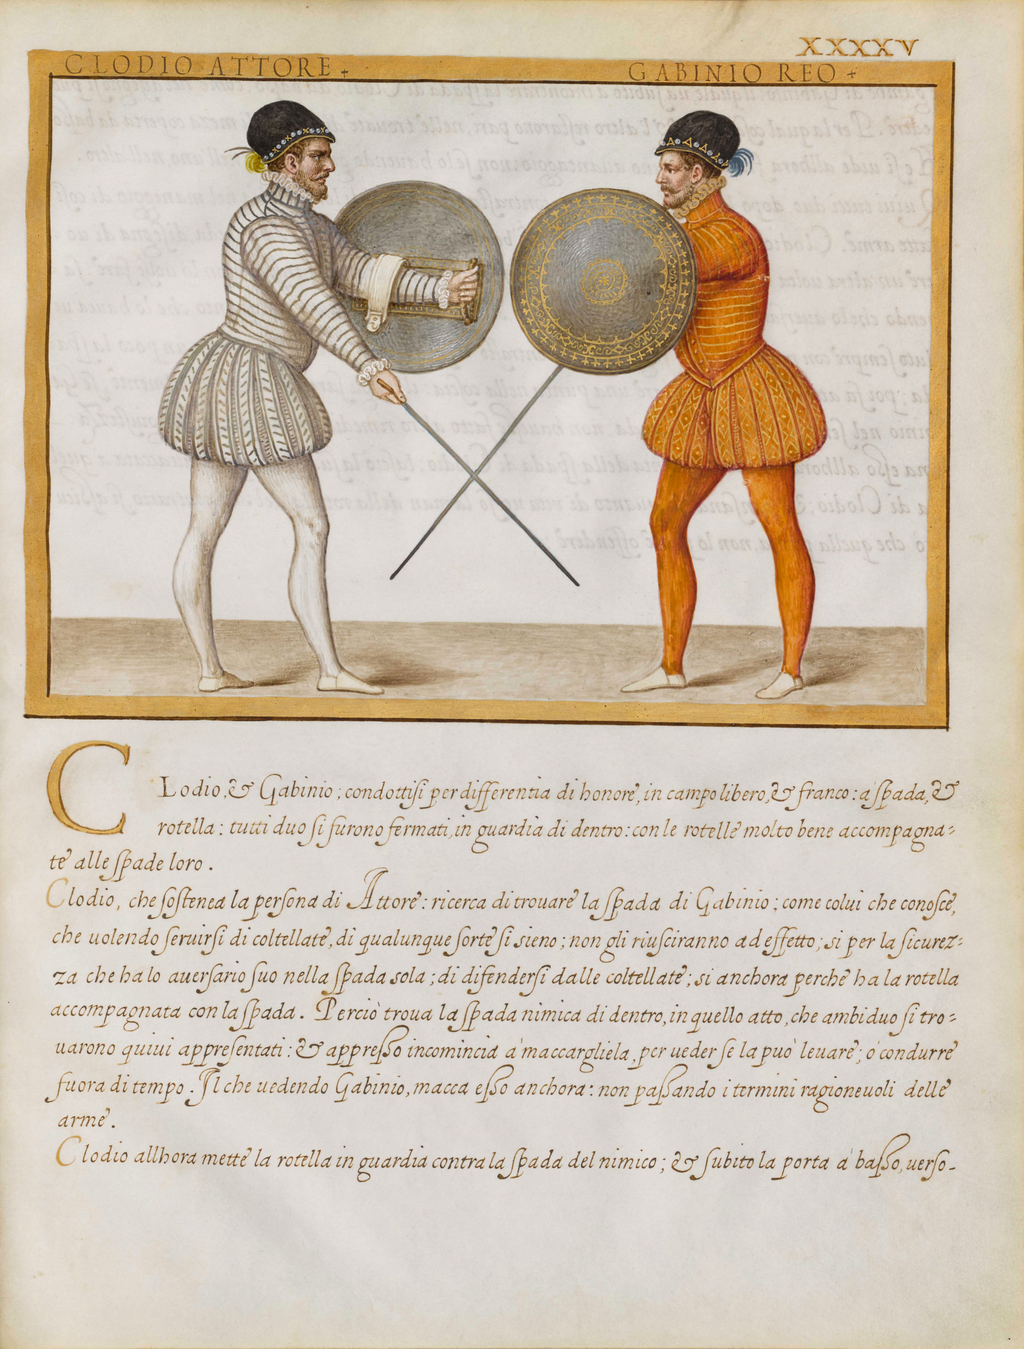 XXXXV
CLODIO ATTORE +
GABINIO REO +
CLodio, & Gabinio; condottisi per differentia di honore, in campo libero, & franco: a spada, &
rotella: tutti duo si furono fermati, in guardia di dentro: con le rotelle molto bene accompagna=
te alle spade loro.
Clodio, che sostenea la persona di Attore: ricerca di trouare la spada di Gabinio; come colui che conosce,
che uolendo seruirsi di coltellate, di qualunque sorte si sieno; non gli riusciranno ad effetto; si per la sicurez=
za che ha lo auersario suo nella spada sola; di difendersi dalle coltellate; si anchora perche ha la rotella
accompagnata con la spada. Perciò troua la spada nimica di dentro, in quello atto, che ambiduo si tro=
uarono quiui appresentati: & appresso incomincia a' maccargliela, per ueder se la può leuare; o' condurre
fuora di tempo. Il che uedendo Gabinio, macca esso anchora: non passando i termini ragioneuoli delle
arme.
Clodio allhora mette la rotella in guardia contra la spada del nimico; & subito la porta a' basso, uerso-